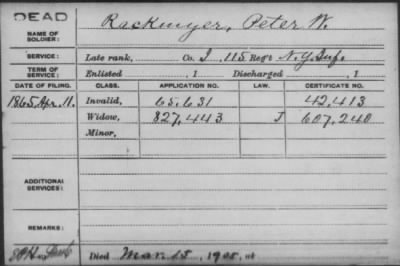 DEAD
NAME OF SOLDIER: Rackmyer, Peter W.
SERVICE: Late rank, Co. I, 115 Reg't N.Y. Inf.
TERM OF SERVICE: Enlisted , 1 Discharged , 1
DATE OF FILING. CLASS. APPLICATION NO. LAW. CERTIFICATE NO.
1865, Apr. 11. Invalid, 65.631 42,413
Widow, 827,443 J 607,240
Minor,
ADDITIONAL SERVICES:
REMARKS:
Died Mar. 15, 1905, at